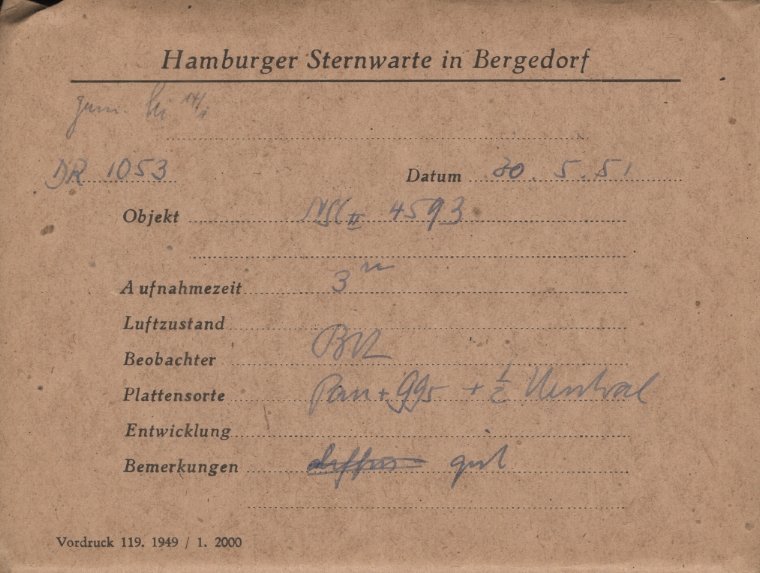 Hamburger Sternwarte in Bergedorf
DR 1053
Datum 30. 5. 51
Objekt 4593
Aufnahmezeit 3 m
Luftzustand
Beobachter
Plattensorte Pan + GG5 + ½ Neutral
Entwicklung
Bemerkungen diffus gut
Vordruck 119. 1949 / 1. 2000